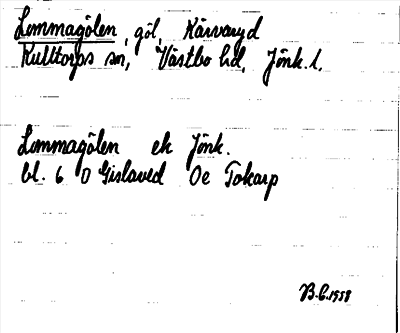 Lommagölen, göl, Kärvaryd
Kulltorps sn, Västbo hd, Jönk. l.
Lommagölen ek Jönk.
bl. 6 O Gislaved Oe Tokarp
B.E. 1958